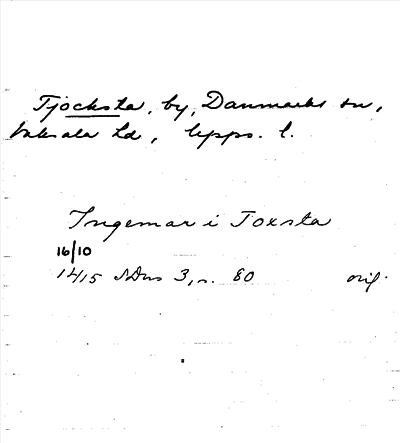 Tjocksta, by, Danmarks sn,
Vaksala hd, Upps. l.
Ingemar i Toxsta
16/10
1415 SDns 3, s. 80 orig.